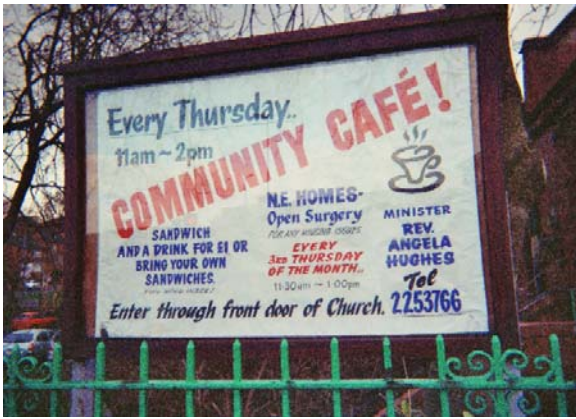 Every Thursday..
11am ~ 2pm
COMMUNITY CAFÉ!
SANDWICH
AND A DRINK FOR £1 OR
BRING YOUR OWN
SANDWICHES.
N.E. HOMES-
Open Surgery
FOR ANY HOUSING ISSUES
EVERY
3RD THURSDAY
OF THE MONTH..
11·30am ~ 1·00pm
MINISTER
REV.
ANGELA
HUGHES
Tel
2253766
Enter through front door of Church.